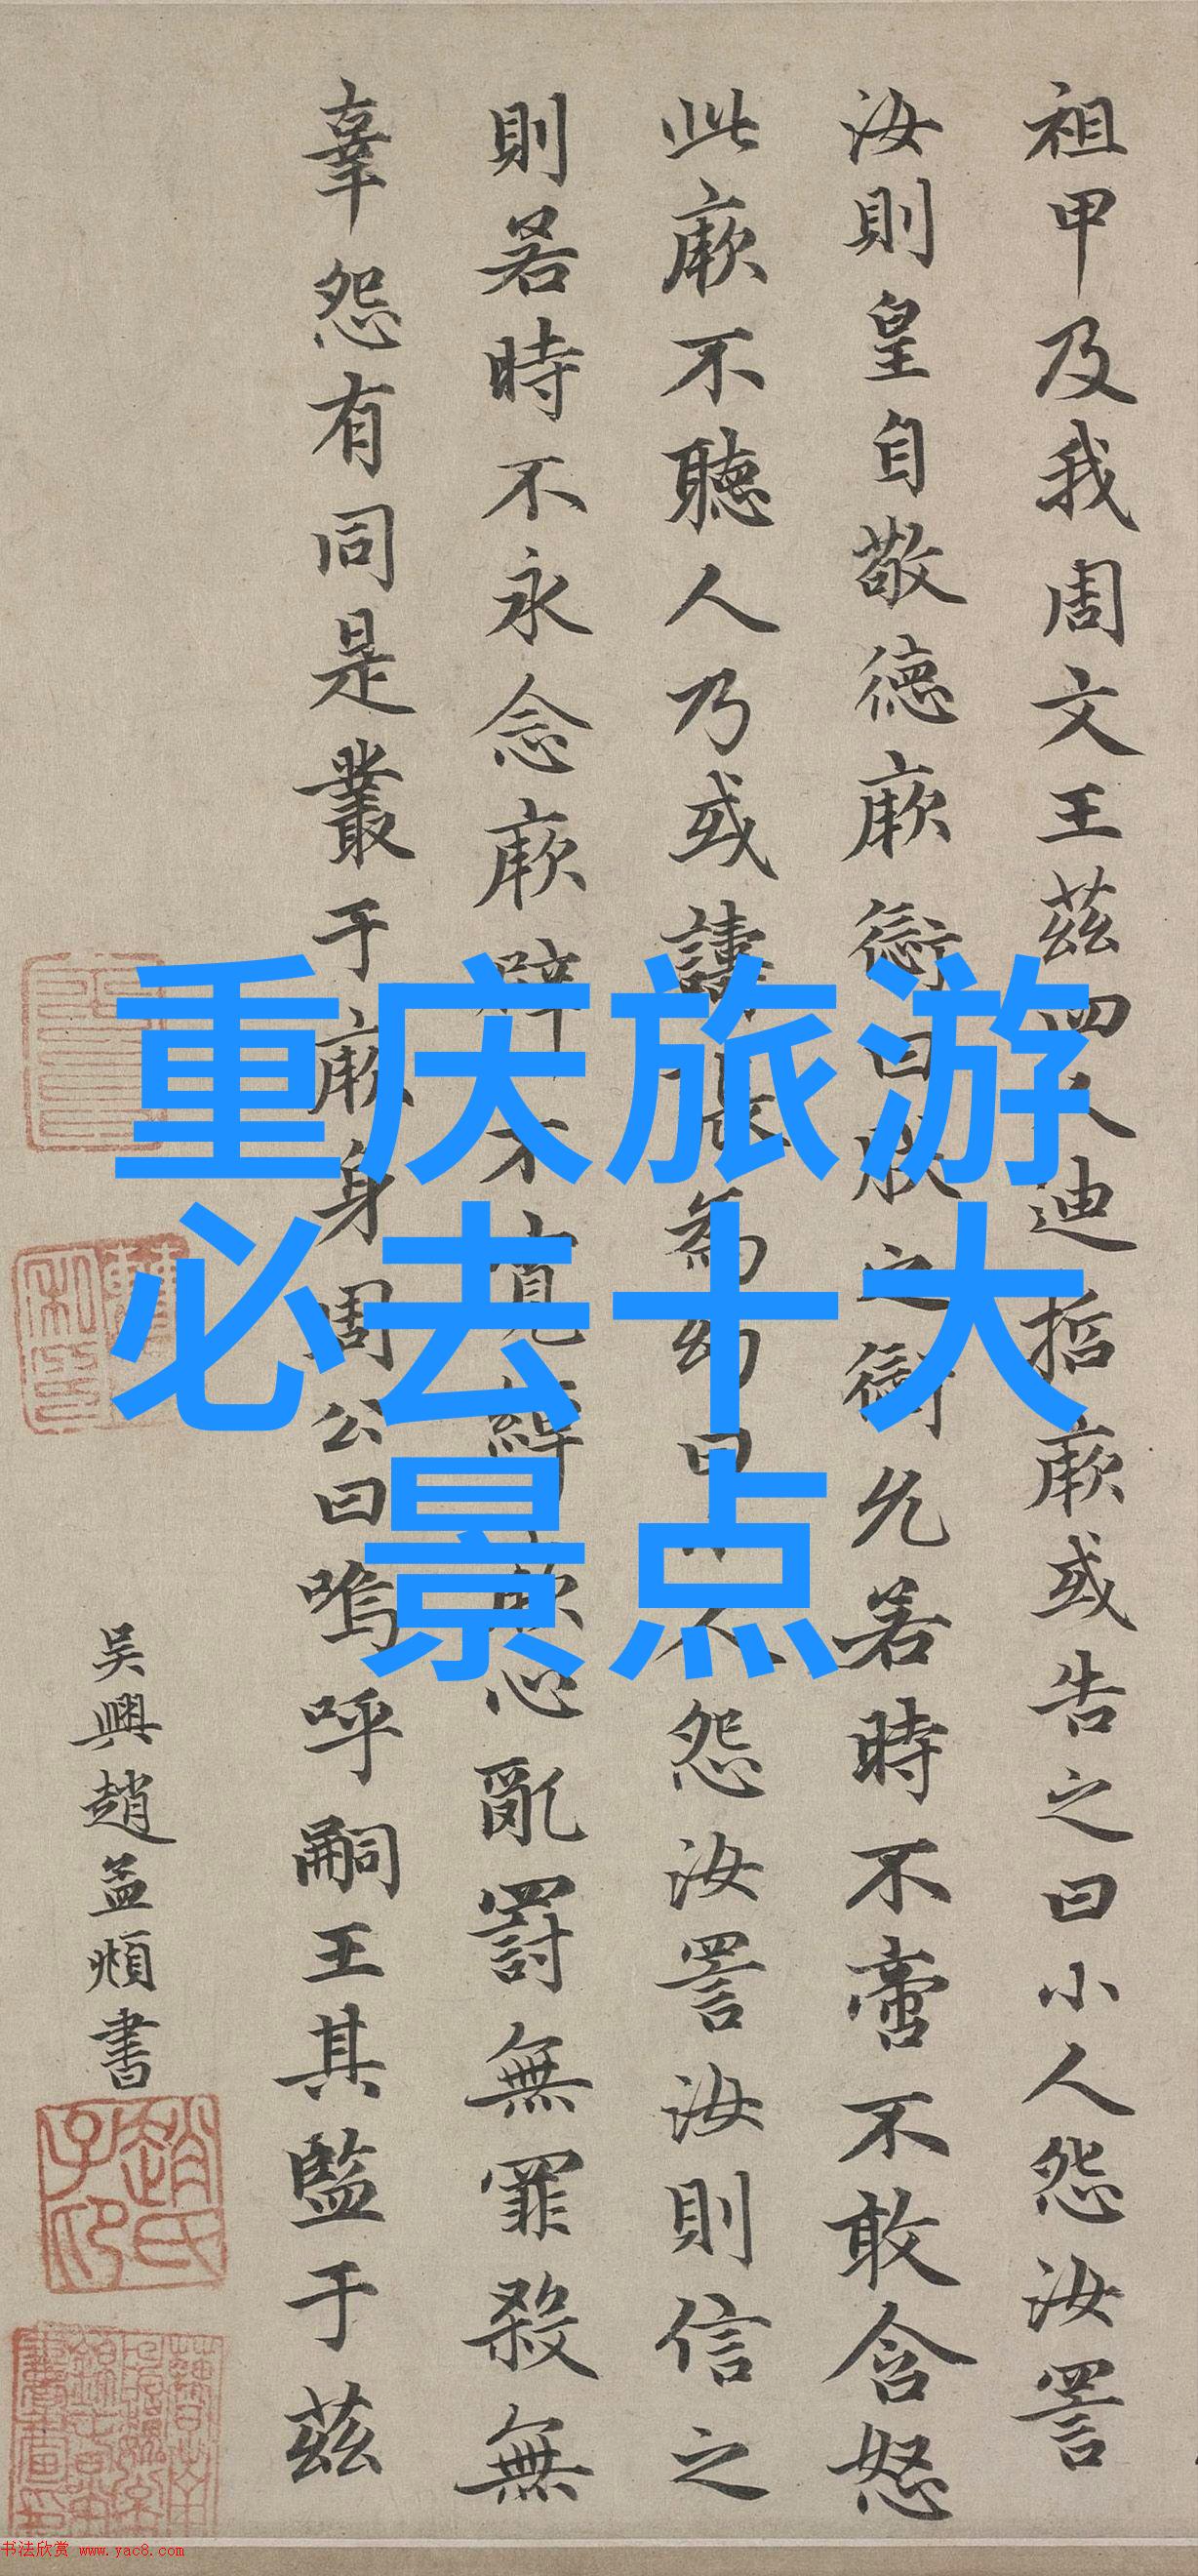 祖甲及我周文王茲四人迪哲厥或告之曰小人怨汝詈
汝則皇自敬德厥愆曰朕之愆允若時不啻不敢含怒
此厥不聽人乃或譸張為幻曰小人怨汝詈汝則信之
則若時不永念厥辟不寬綽厥心亂罰無罪殺無
辜怨有同是叢于厥身周公曰嗚呼嗣王其監于茲
吳興趙孟頫書
趙氏子昂
重庆旅游
必去十大
景点
书法欣赏 www.yac8.com